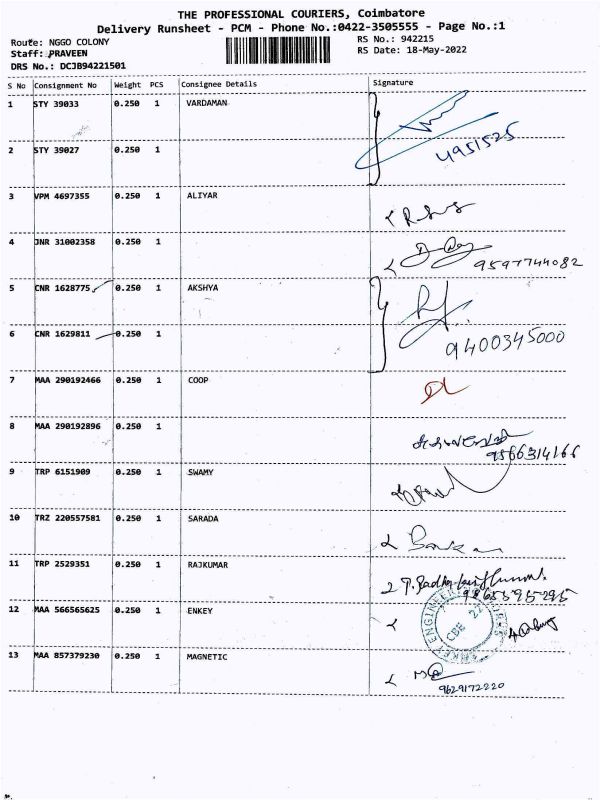 THE PROFESSIONAL COURIERS, Coimbatore
Delivery Runsheet - PCM - Phone No.:0422-3505555 - Page No.:1
Route: NGGO COLONY
RS No.: 942215
Staff: PRAVEEN
RS Date: 18-May-2022
DRS No.: DCJB94221501
S No Consignment No Weight PCS Consignee Details Signature
1 STY 39033 0.250 1 VARDAMAN
4951525
2 STY 39027 0.250 1
3 VPM 4697355 0.250 1 ALIYAR
4 JNR 31002358 0.250 1
9597744082
5 CNR 1628775 0.250 1 AKSHYA
6 CNR 1629811 0.250 1
9400345000
7 MAA 290192466 0.250 1 COOP
8 MAA 290192896 0.250 1
9566314166
9 TRP 6151909 0.250 1 SWAMY
10 TRZ 220557581 0.250 1 SARADA
11 TRP 2529351 0.250 1 RAJKUMAR
9865595295
12 MAA 566565625 0.250 1 ENKEY
CBE 22
13 MAA 857379230 0.250 1 MAGNETIC
9629172220